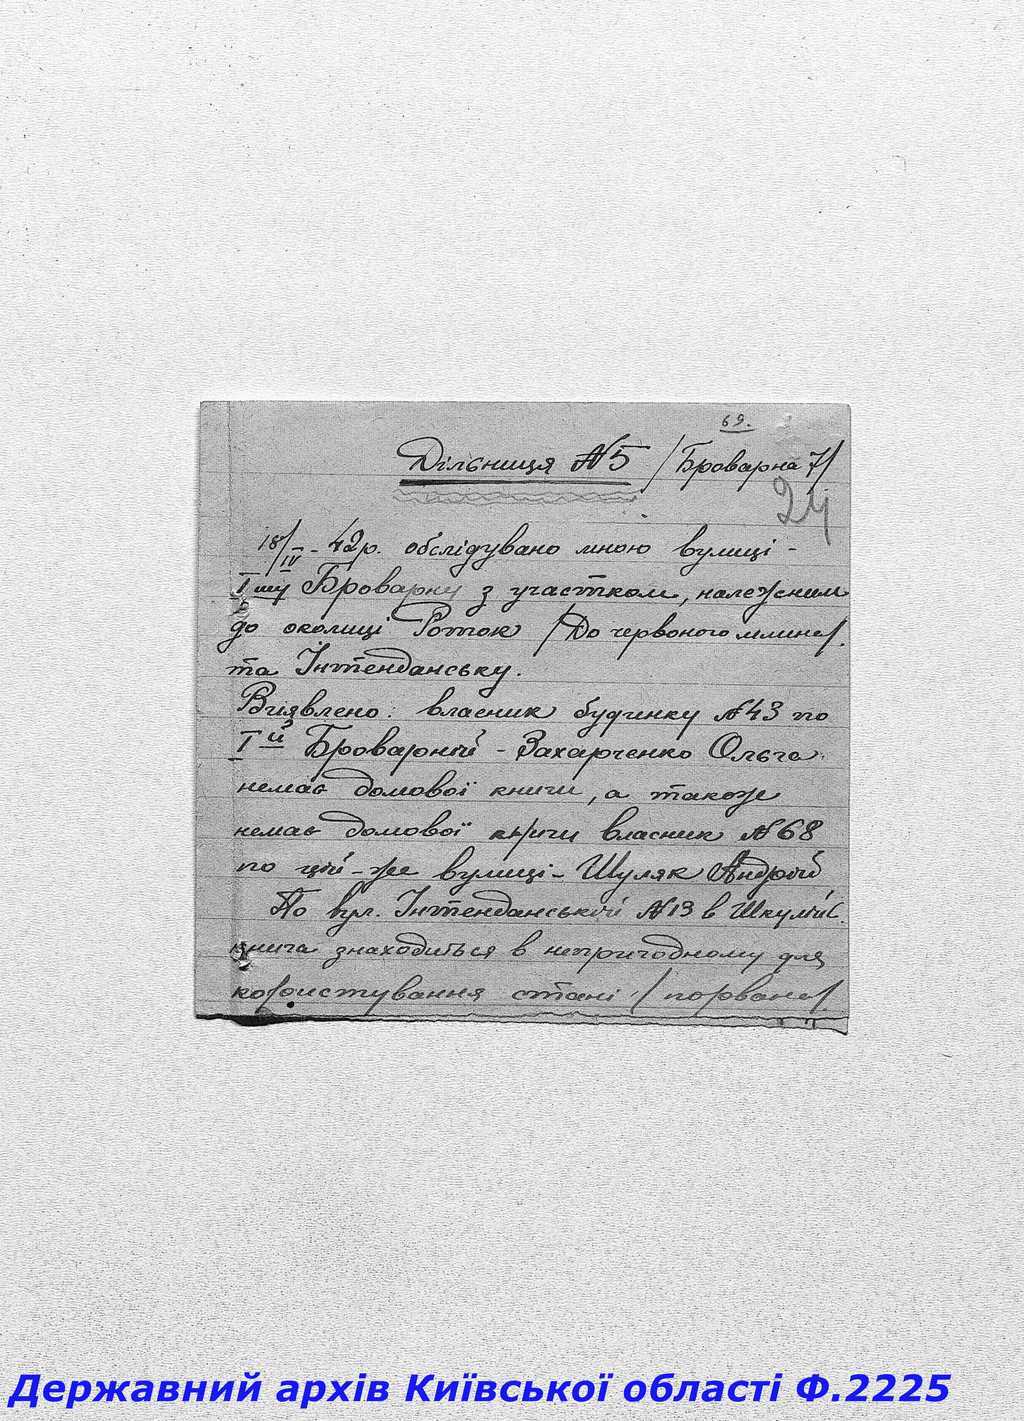 69.
Дільниця №5 /Броварна 7/
24
18/IV - 42р. обслідувано мною вулиці -
I шу Броварну з участком, належним
до околиці Роток /До червоного млина/.
та Інтенданську.
Виявлено: власник будинку №43 по
I й Броварній - Захарченко Ольга
немає домової книги, а також
немає домової книги власник №68
по цій-же вулиці - Шуляк Андрій
По вул. Інтенданській №13 в
книга знаходиться в непригодному для
користування стані /порвана/.
Державний архів Київської області Ф.2225